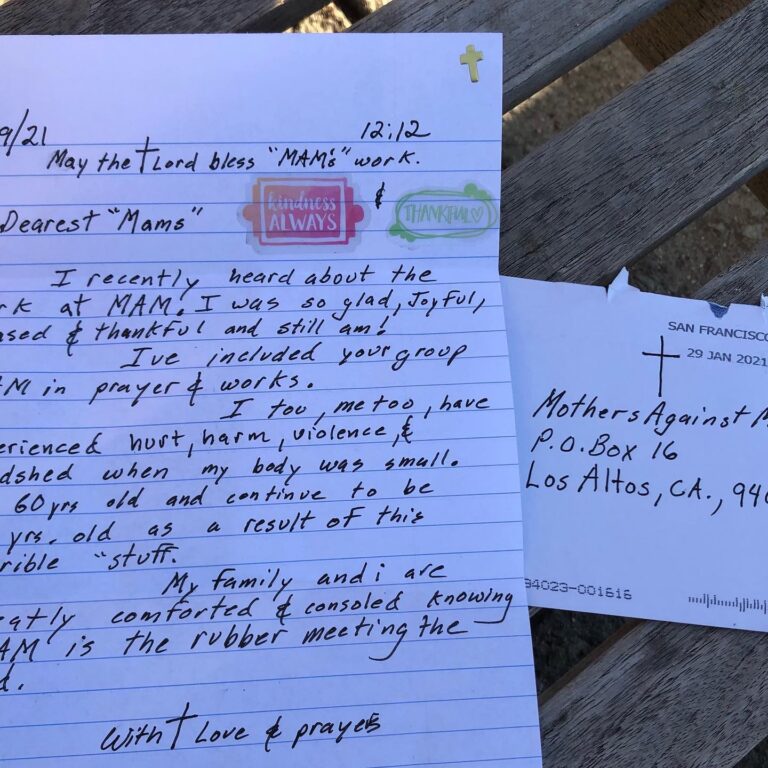 9/21 12:12
May the Lord bless "MAM's" work.
kindness
ALWAYS
&
THANKFUL
Dearest "Mams"
I recently heard about the
rk at MAM. I was so glad, Joyful,
ased & thankful and still am!
I've included your group
M in prayer & works.
I too, me too, have
erienced hurt, harm, violence, &
dshed when my body was small.
60 yrs old and continue to be
yrs. old as a result of this
rrible "stuff.
My family and i are
eatly comforted & consoled knowing
AM is the rubber meeting the
d.
With Love & prayers
SAN FRANCISCO
29 JAN 2021
Mothers Against M
P.O. Box 16
Los Altos, CA., 940
94023-001616